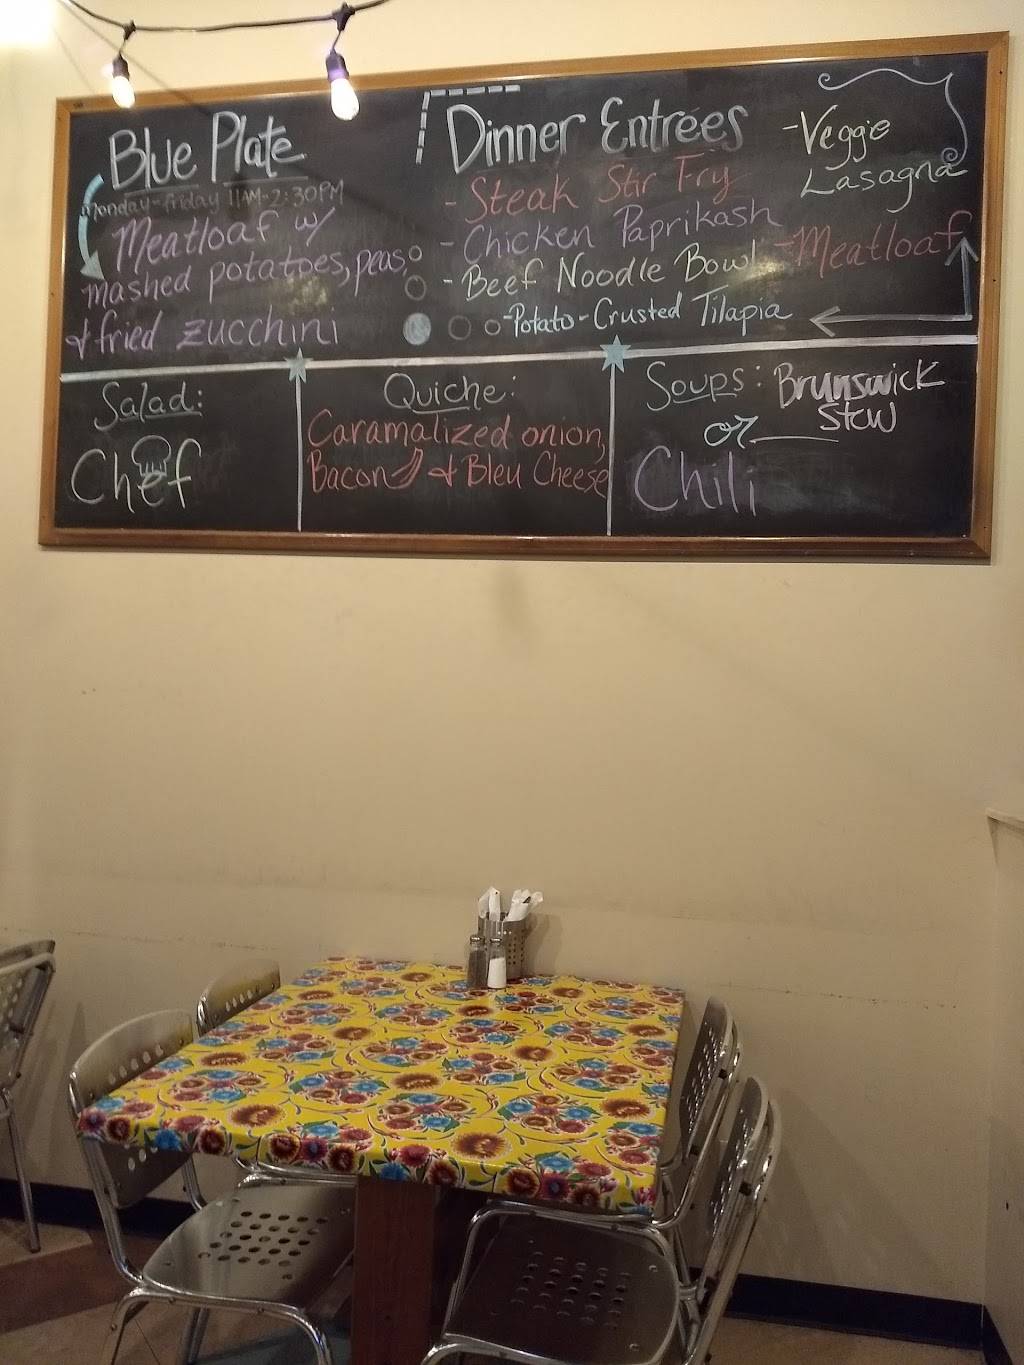 Blue Plate
Monday-Friday 11AM-2:30PM
Meatloaf w/
mashed potatoes, peas,
& fried zucchini
Dinner Entrées
- Steak Stir Fry
- Chicken Paprikash
- Beef Noodle Bowl
- Potato-Crusted Tilapia
- Veggie
Lasagna
- Meatloaf
Salad:
Chef
Quiche:
Caramalized onion,
Bacon & Bleu Cheese
Soups: Brunswick
Stew
or
Chili